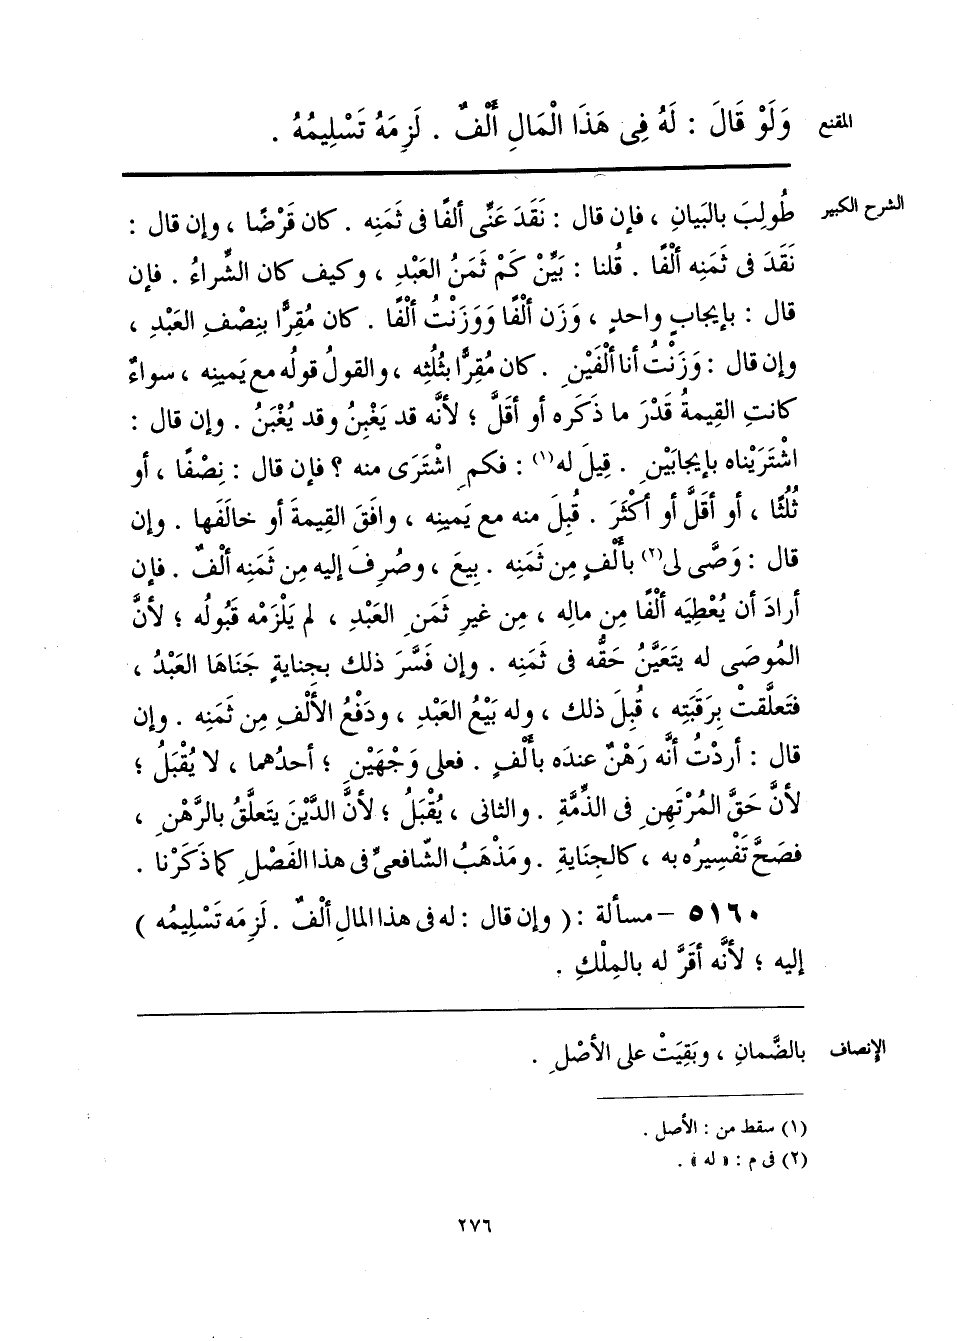 المقنع وَلَوْ قَالَ : لَهُ فِى هَذَا الْمَالِ أَلْفٌ . لَزِمَهُ تَسْلِيمُهُ .
الشرح الكبير طُولِبَ بالبَيانِ ، فإن قال : نَقَدَ عَنِّى ألفًا فى ثَمَنِه . كان قَرْضًا ، وإن قال :
نَقَدَ فى ثَمَنِه ألْفًا . قُلنا : بَيِّنْ كَمْ ثَمَنُ العَبْدِ ، وكيف كان الشِّراءُ . فإن
قال : بإيجابٍ واحدٍ ، وَزَن ألْفًا وَوَزَنْتُ ألْفًا . كان مُقِرًّا بنِصْفِ العَبْدِ ،
وإن قال : وَزَنْتُ أنا ألْفَيْنِ . كان مُقِرًّا بثُلُثِه ، والقولُ قولُه مع يَمينِه ، سواءٌ
كانتِ القِيمةُ قَدْرَ ما ذَكَره أو أقَلَّ ؛ لأنَّه قد يَغْبِنُ وقد يُغْبَنُ . وإن قال :
اشْتَرَيْناه بإيجابَيْنِ . قِيلَ له(١) : فكمِ اشْتَرَى منه ؟ فإن قال : نِصْفًا ، أو
ثُلُثًا ، أو أقَلَّ أو أكْثَرَ . قُبِلَ منه مع يَمينِه ، وافَقَ القِيمةَ أو خالَفَها . وإن
قال : وَصَّى لى(٢) بألْفٍ مِن ثَمَنِه . بِيعَ ، وصُرِفَ إليه مِن ثَمَنِه ألْفٌ . فإن
أرادَ أن يُعْطِيَه ألْفًا مِن مالِه ، مِن غيرِ ثَمَنِ العَبْدِ ، لم يَلْزَمْه قَبُولُه ؛ لأنَّ
المُوصَى له يتَعَيَّنُ حَقُّه فى ثَمَنِه . وإن فَسَّرَ ذلك بجِنايةٍ جَنَاهَا العَبْدُ ،
فتَعلَّقتْ بِرَقَبَتِه ، قُبِلَ ذلك ، وله بَيْعُ العَبْدِ ، ودَفْعُ الأَلْفِ مِن ثَمَنِه . وإن
قال : أردْتُ أنَّه رَهْنٌ عندَه بألْفٍ . فعلى وَجْهَيْنِ ؛ أحدُهما ، لا يُقْبَلُ ؛
لأنَّ حَقَّ المُرْتَهِنِ فى الذِّمَّةِ . والثانى ، يُقْبَلُ ؛ لأنَّ الدَّيْنَ يتَعلَّقُ بالرَّهْنِ ،
فصَحَّ تَفْسِيرُه به ، كالجِنايةِ . ومَذْهَبُ الشّافعىِّ فى هذا الفَصْلِ كما ذَكَرْنا .
٥١٦٠ – مسألة : ( وإن قال : له فى هذا المالِ ألْفٌ . لَزِمَه تَسْلِيمُه )
إليه ؛ لأنَّه أقَرَّ له بالمِلْكِ .
الإنصاف بالضَّمانِ ، وبَقِيَتْ على الأصْلِ .
(١) سقط من : الأصل .
(٢) فى م : « له » .
٢٧٦